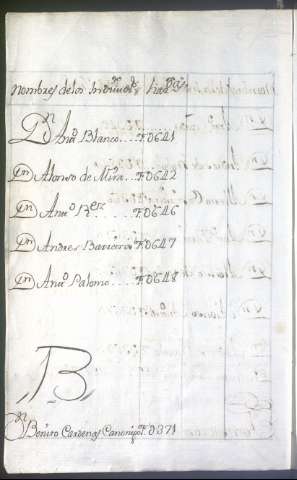 Nombres de los Individ.s
Dn Anto Blanco.....F.0641
Dn Alonso de Mira..F.0642
Dn Anto Rez....F.0646
Dn Andres Barreiro F.0647
Dn Anto Palomo....F.0648
B
Dn Benito Cardenas Canonigo F.0371